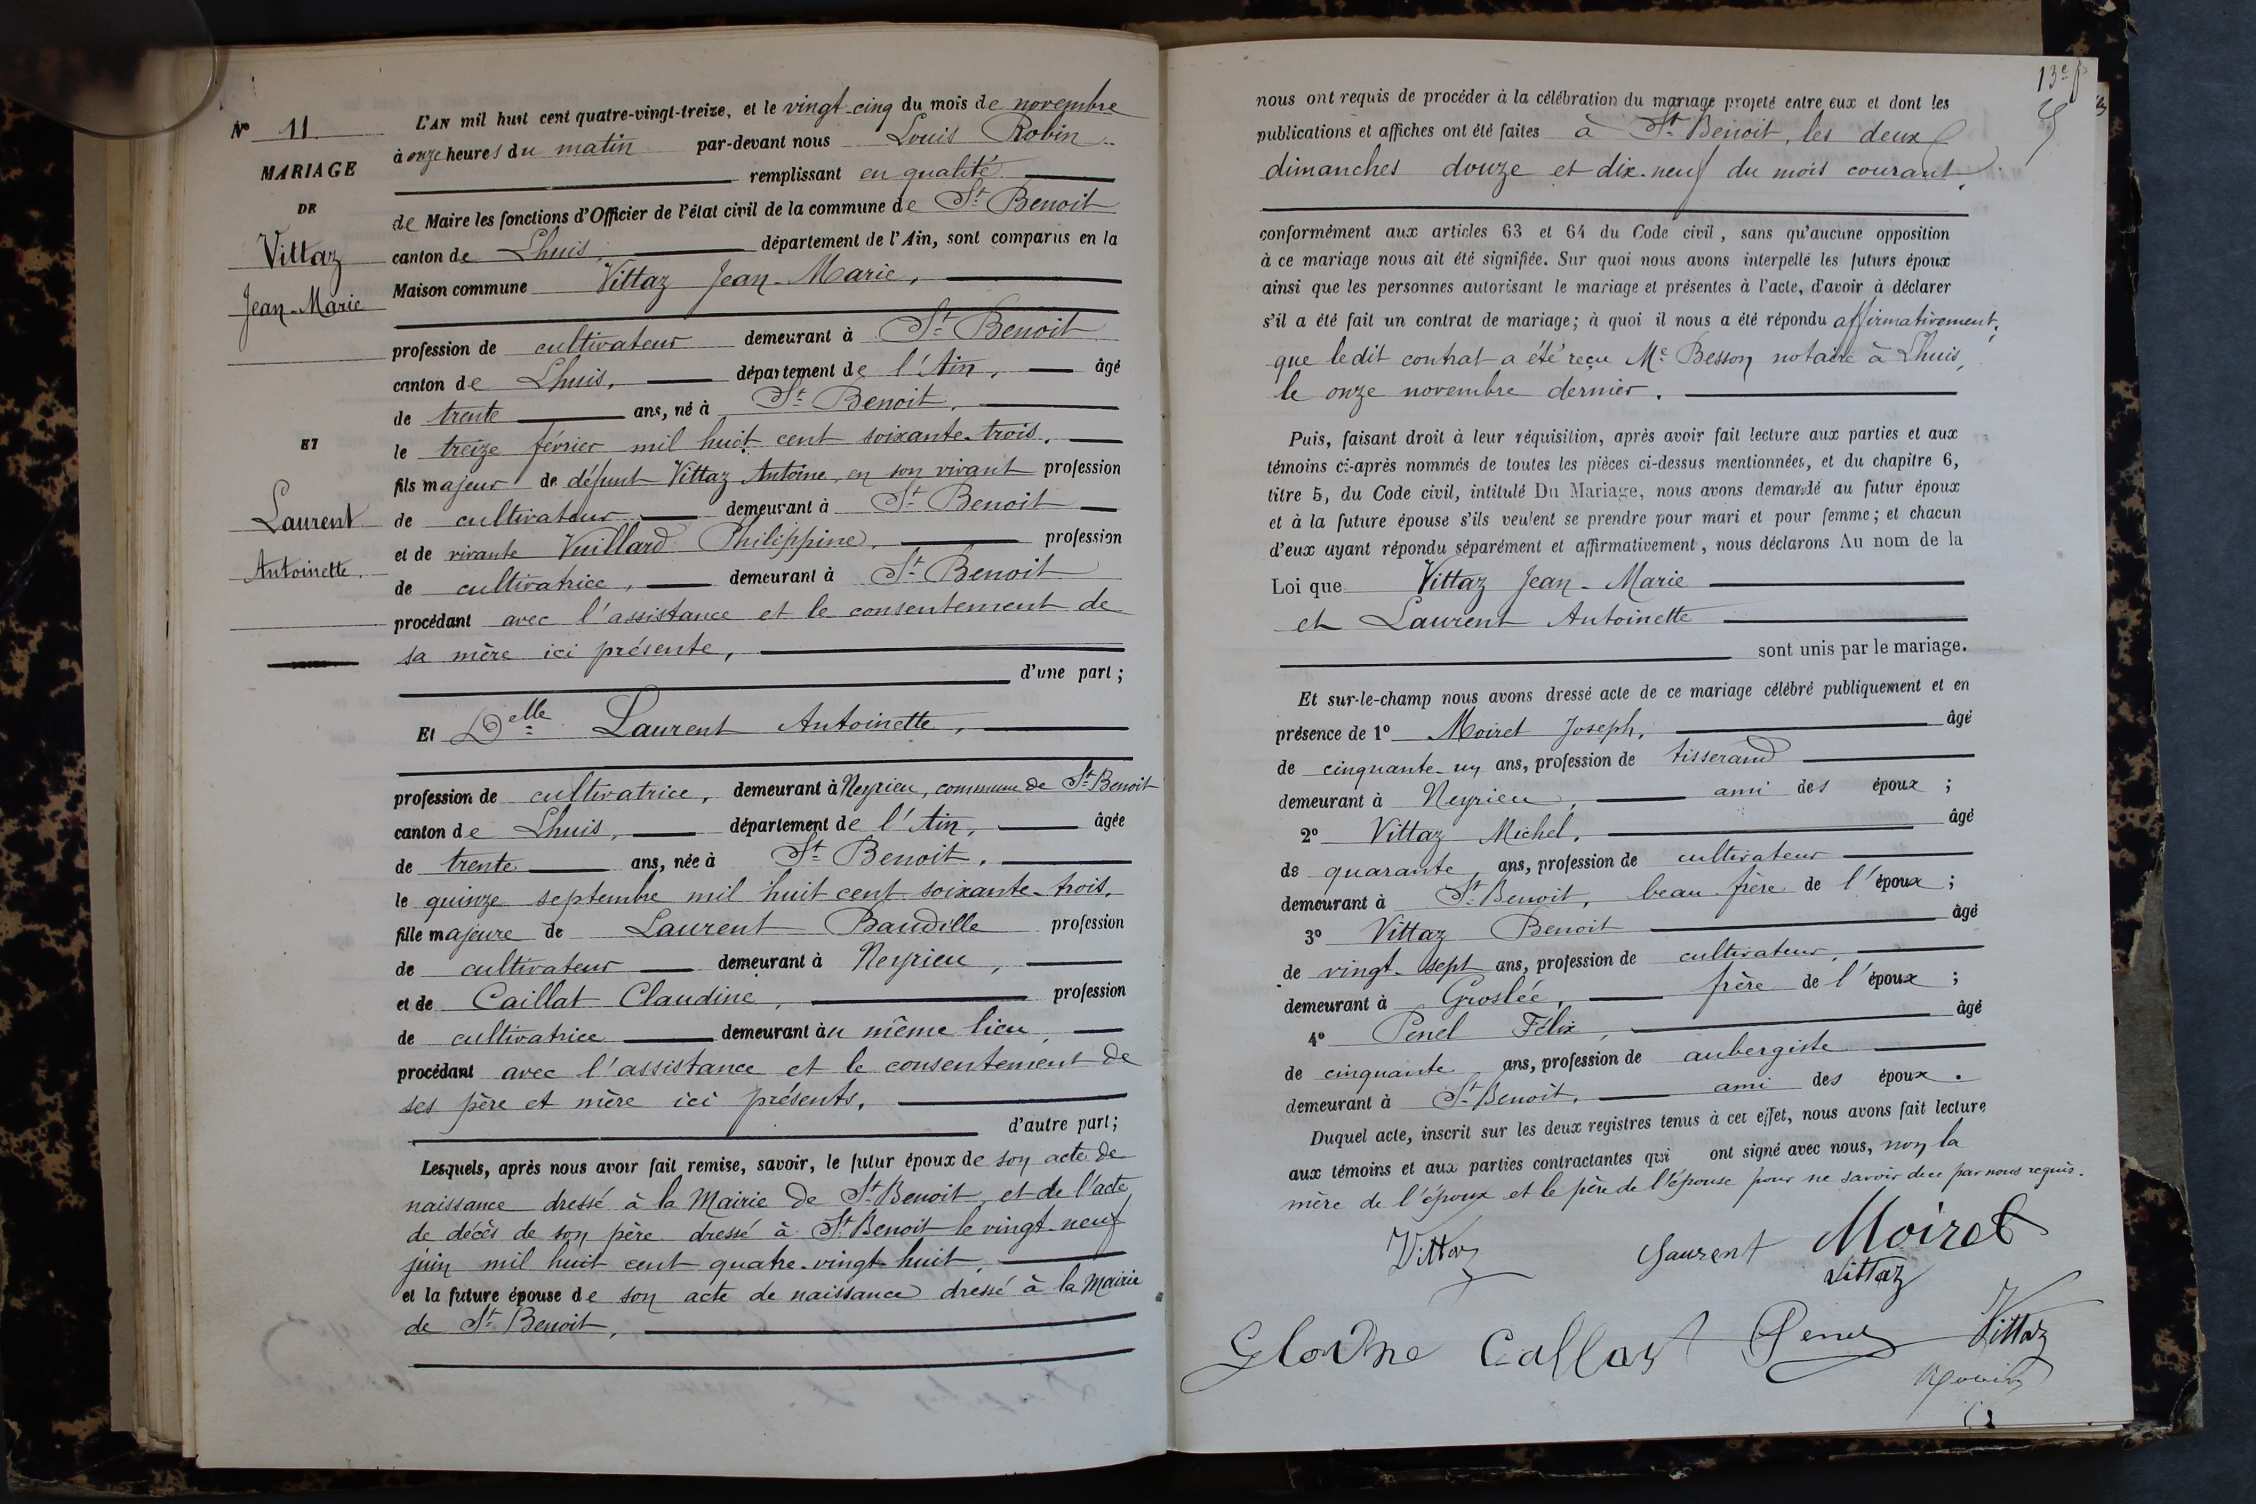 Nº 11
MARIAGE
DE
Vittaz
Jean-Marie
ET
Laurent
Antoinette.
L'AN mil huit cent quatre-vingt-treize, et le vingt-cinq du mois de novembre
à onze heures du matin par-devant nous Louis Robin
remplissant en qualité
de Maire les fonctions d'Officier de l'état civil de la commune de St Benoit
canton de Lhuis, département de l'Ain, sont comparus en la
Maison commune Vittaz Jean-Marie,
profession de cultivateur demeurant à St Benoit
canton de Lhuis, département de l'Ain, âgé
de trente ans, né à St Benoit,
le treize février mil huit cent soixante-trois,
fils majeur de défunt Vittaz Antoine, en son vivant profession
de cultivateur demeurant à St Benoit
et de vivante Vuillard Philippine, profession
de cultivatrice, demeurant à St Benoit
procédant avec l'assistance et le consentement de
sa mère ici présente,
d'une part;
Et Delle Laurent Antoinette,
profession de cultivatrice, demeurant à Neyrieu, commune de St Benoit
canton de Lhuis, département de l'Ain, âgée
de trente ans, née à St Benoit,
le quinze septembre mil huit cent soixante-trois,
fille majeure de Laurent Baudille profession
de cultivateur demeurant à Neyrieu,
et de Caillat Claudine, profession
de cultivatrice demeurant au même lieu,
procédant avec l'assistance et le consentement de
ses père et mère ici présents,
d'autre part;
Lesquels, après nous avoir fait remise, savoir, le futur époux de son acte de
naissance dressé à la Mairie de St Benoit, et de l'acte
de décès de son père dressé à St Benoit le vingt-neuf
juin mil huit cent quatre-vingt-huit,
et la future épouse de son acte de naissance dressé à la Mairie
de St Benoit,
13e f
nous ont requis de procéder à la célébration du mariage projeté entre eux et dont les
publications et affiches ont été faites à St Benoit, les deux
dimanches douze et dix-neuf du mois courant,
conformément aux articles 63 et 64 du Code civil, sans qu'aucune opposition
à ce mariage nous ait été signifiée. Sur quoi nous avons interpellé les futurs époux
ainsi que les personnes autorisant le mariage et présentes à l'acte, d'avoir à déclarer
s'il a été fait un contrat de mariage; à quoi il nous a été répondu affirmativement,
que ledit contrat a été reçu Me Besson notaire à Lhuis,
le onze novembre dernier.
Puis, faisant droit à leur réquisition, après avoir fait lecture aux parties et aux
témoins ci-après nommés de toutes les pièces ci-dessus mentionnées, et du chapitre 6,
titre 5, du Code civil, intitulé Du Mariage, nous avons demandé au futur époux
et à la future épouse s'ils veulent se prendre pour mari et pour femme; et chacun
d'eux ayant répondu séparément et affirmativement, nous déclarons Au nom de la
Loi que Vittaz Jean-Marie
et Laurent Antoinette
sont unis par le mariage.
Et sur-le-champ nous avons dressé acte de ce mariage célébré publiquement et en
présence de 1º Moiret Joseph, âgé
de cinquante-un ans, profession de tisserand
demeurant à Neyrieu, ami des époux;
2º Vittaz Michel, âgé
de quarante ans, profession de cultivateur
demeurant à St Benoit, beau-frère de l'époux;
3º Vittaz Benoit âgé
de vingt-sept ans, profession de cultivateur,
demeurant à Groslée, frère de l'époux;
4º Penel Félix, âgé
de cinquante ans, profession de aubergiste
demeurant à St Benoit, ami des époux.
Duquel acte, inscrit sur les deux registres tenus à cet effet, nous avons fait lecture
aux témoins et aux parties contractantes qui ont signé avec nous, non la
mère de l'époux et le père de l'épouse pour ne savoir de ce par nous requis.
Vittaz Laurent Moiret
Vittaz
Glodine Callat Penel Vittaz
Robin